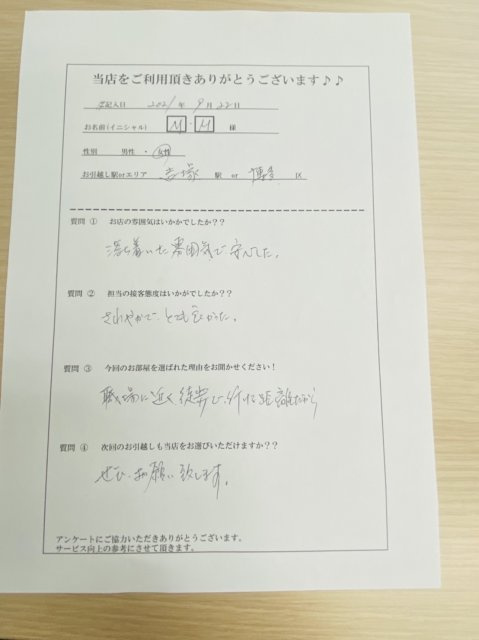 当店をご利用頂きありがとうございます♪♪
ご記入日 2021年 9月 22日
お名前(イニシャル) M・M 様
性別 男性・女性
お引越し駅orエリア 駅 or 博多 区
質問 ① お店の雰囲気はいかかでしたか??
落ち着いた雰囲気で安心した。
質問 ② 担当の接客態度はいかがでしたか??
さわやかで、とても良かった。
質問 ③ 今回のお部屋を選ばれた理由をお聞かせください!
職場に近く徒歩で行ける距離だから
質問 ④ 次回のお引越しも当店をお選びいただけますか??
ぜひ、お願い致します。
アンケートにご協力いただきありがとうございます。
サービス向上の参考にさせて頂きます。